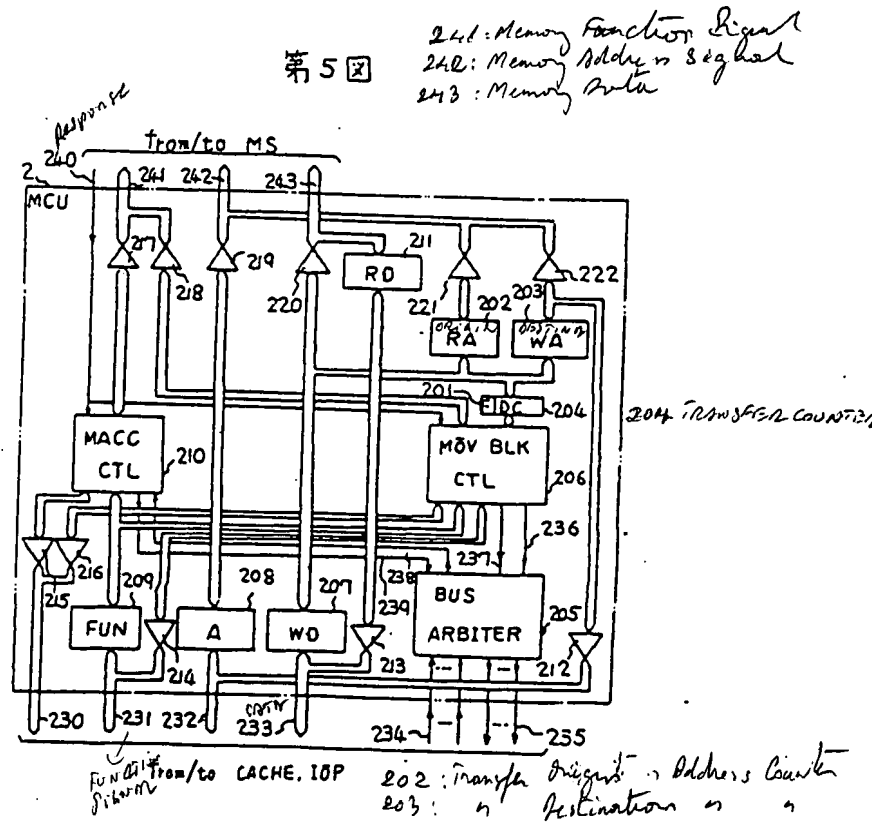 241: Memory Function Signal
242: Memory Address Signal
243: Memory Data
第5図
Response
from/to MS
240
241
242
243
2
MCU
217
218
219
220
RD
211
221
222
202
203
RA
WA
201
E
DC
204
204 TRANSFER COUNTER
MACC
CTL
210
MŌV BLK
CTL
206
236
237
238
239
216
215
209
208
207
FUN
A
WD
BUS
ARBITER
205
214
213
212
230
231
232
233
234
235
from/to CACHE, IŌP
202: Transfer Address Counter
203: " Destination " "